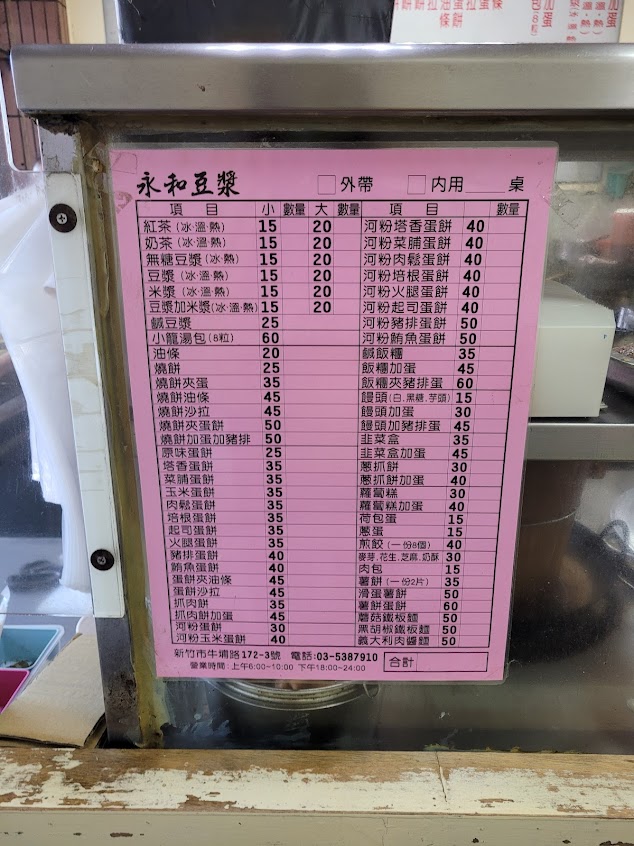 加蛋
永和豆漿 □外帶 □內用___桌
項目 小 數量 大 數量
紅茶(冰·溫·熱) 15 20
奶茶(冰·溫·熱) 15 20
無糖豆漿(冰·溫·熱) 15 20
豆漿(冰·溫·熱) 15 20
米漿(冰·溫·熱) 15 20
豆漿加米漿(冰·溫·熱) 15 20
鹹豆漿 25
小籠湯包(8粒) 60
油條 20
燒餅 25
燒餅夾蛋 35
燒餅油條 45
燒餅沙拉 45
燒餅夾蛋餅 50
燒餅加蛋加豬排 50
原味蛋餅 25
塔香蛋餅 35
菜脯蛋餅 35
玉米蛋餅 35
肉鬆蛋餅 35
培根蛋餅 35
起司蛋餅 35
火腿蛋餅 35
豬排蛋餅 40
鮪魚蛋餅 40
蛋餅夾油條 45
蛋餅沙拉 45
抓肉餅 35
抓肉餅加蛋 45
河粉蛋餅 30
河粉玉米蛋餅 40
項目 數量
河粉塔香蛋餅 40
河粉菜脯蛋餅 40
河粉肉鬆蛋餅 40
河粉培根蛋餅 40
河粉火腿蛋餅 40
河粉起司蛋餅 40
河粉豬排蛋餅 50
河粉鮪魚蛋餅 50
鹹飯糰 35
飯糰加蛋 45
飯糰夾豬排蛋 60
饅頭(白.黑糖.芋頭) 15
饅頭加蛋 30
饅頭加豬排蛋 45
韭菜盒 35
韭菜盒加蛋 45
蔥抓餅 30
蔥抓餅加蛋 40
蘿蔔糕 30
蘿蔔糕加蛋 40
荷包蛋 15
蔥蛋 15
煎餃(一份8個) 40
麥芽.花生.芝麻.奶酥 30
肉包 15
薯餅(一份2片) 35
滑蛋薯餅 50
薯餅蛋餅 60
蘑菇鐵板麵 50
黑胡椒鐵板麵 50
義大利肉醬麵 50
新竹市牛埔路172-3號 電話:03-5387910 合計
營業時間:上午6:00~10:00 下午18:00~24:00